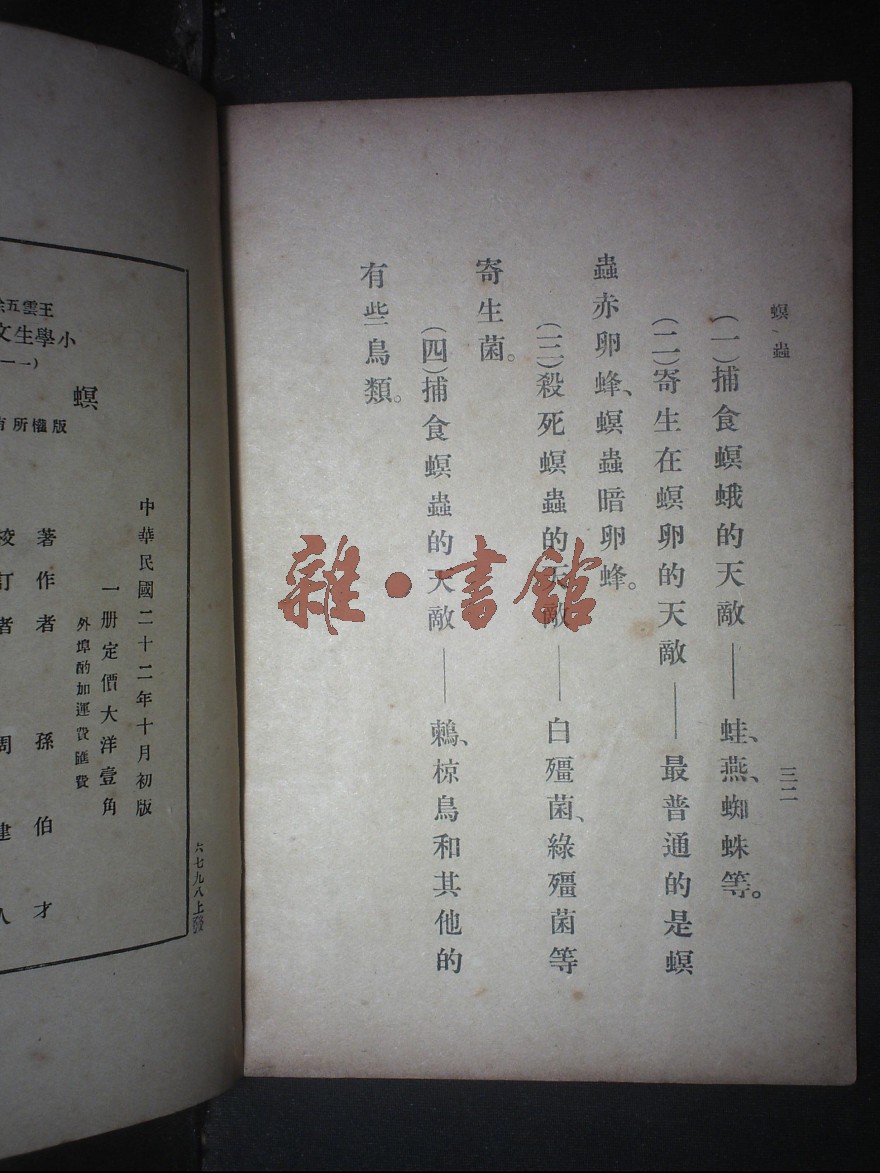 螟蟲
三二
(一)捕食螟蛾的天敵——蛙、燕、蜘蛛等。
(二)寄生在螟卵的天敵——最普通的是螟
蟲赤卵蜂、螟蟲暗卵蜂。
(三)殺死螟蟲的天敵——白殭菌、綠殭菌等
寄生菌。
(四)捕食螟蟲的天敵——鶫、椋鳥和其他的
有些鳥類。
雜·書館
王雲五
小學生文
螟
版權所有
中華民國二十二年十月初版
一册定價大洋壹角
外埠酌加運費匯費
著作者 孫伯才
校訂者 周建人
六七九八上